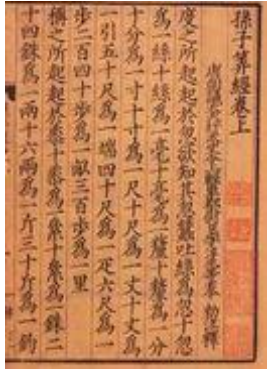 孫子算經卷上
度之所起起於忽欲知其忽蠶吐絲為忽十忽
為一絲十絲為一毫十毫為一釐十釐為一分
十分為一寸十寸為一尺十尺為一丈十丈為
一引五十尺為一端四十尺為一疋六尺為一
步二百四十步為一畝三百步為一里
稱之所起起於黍十黍為一絫十絫為一銖二
十四銖為一兩十六兩為一斤三十斤為一鈞